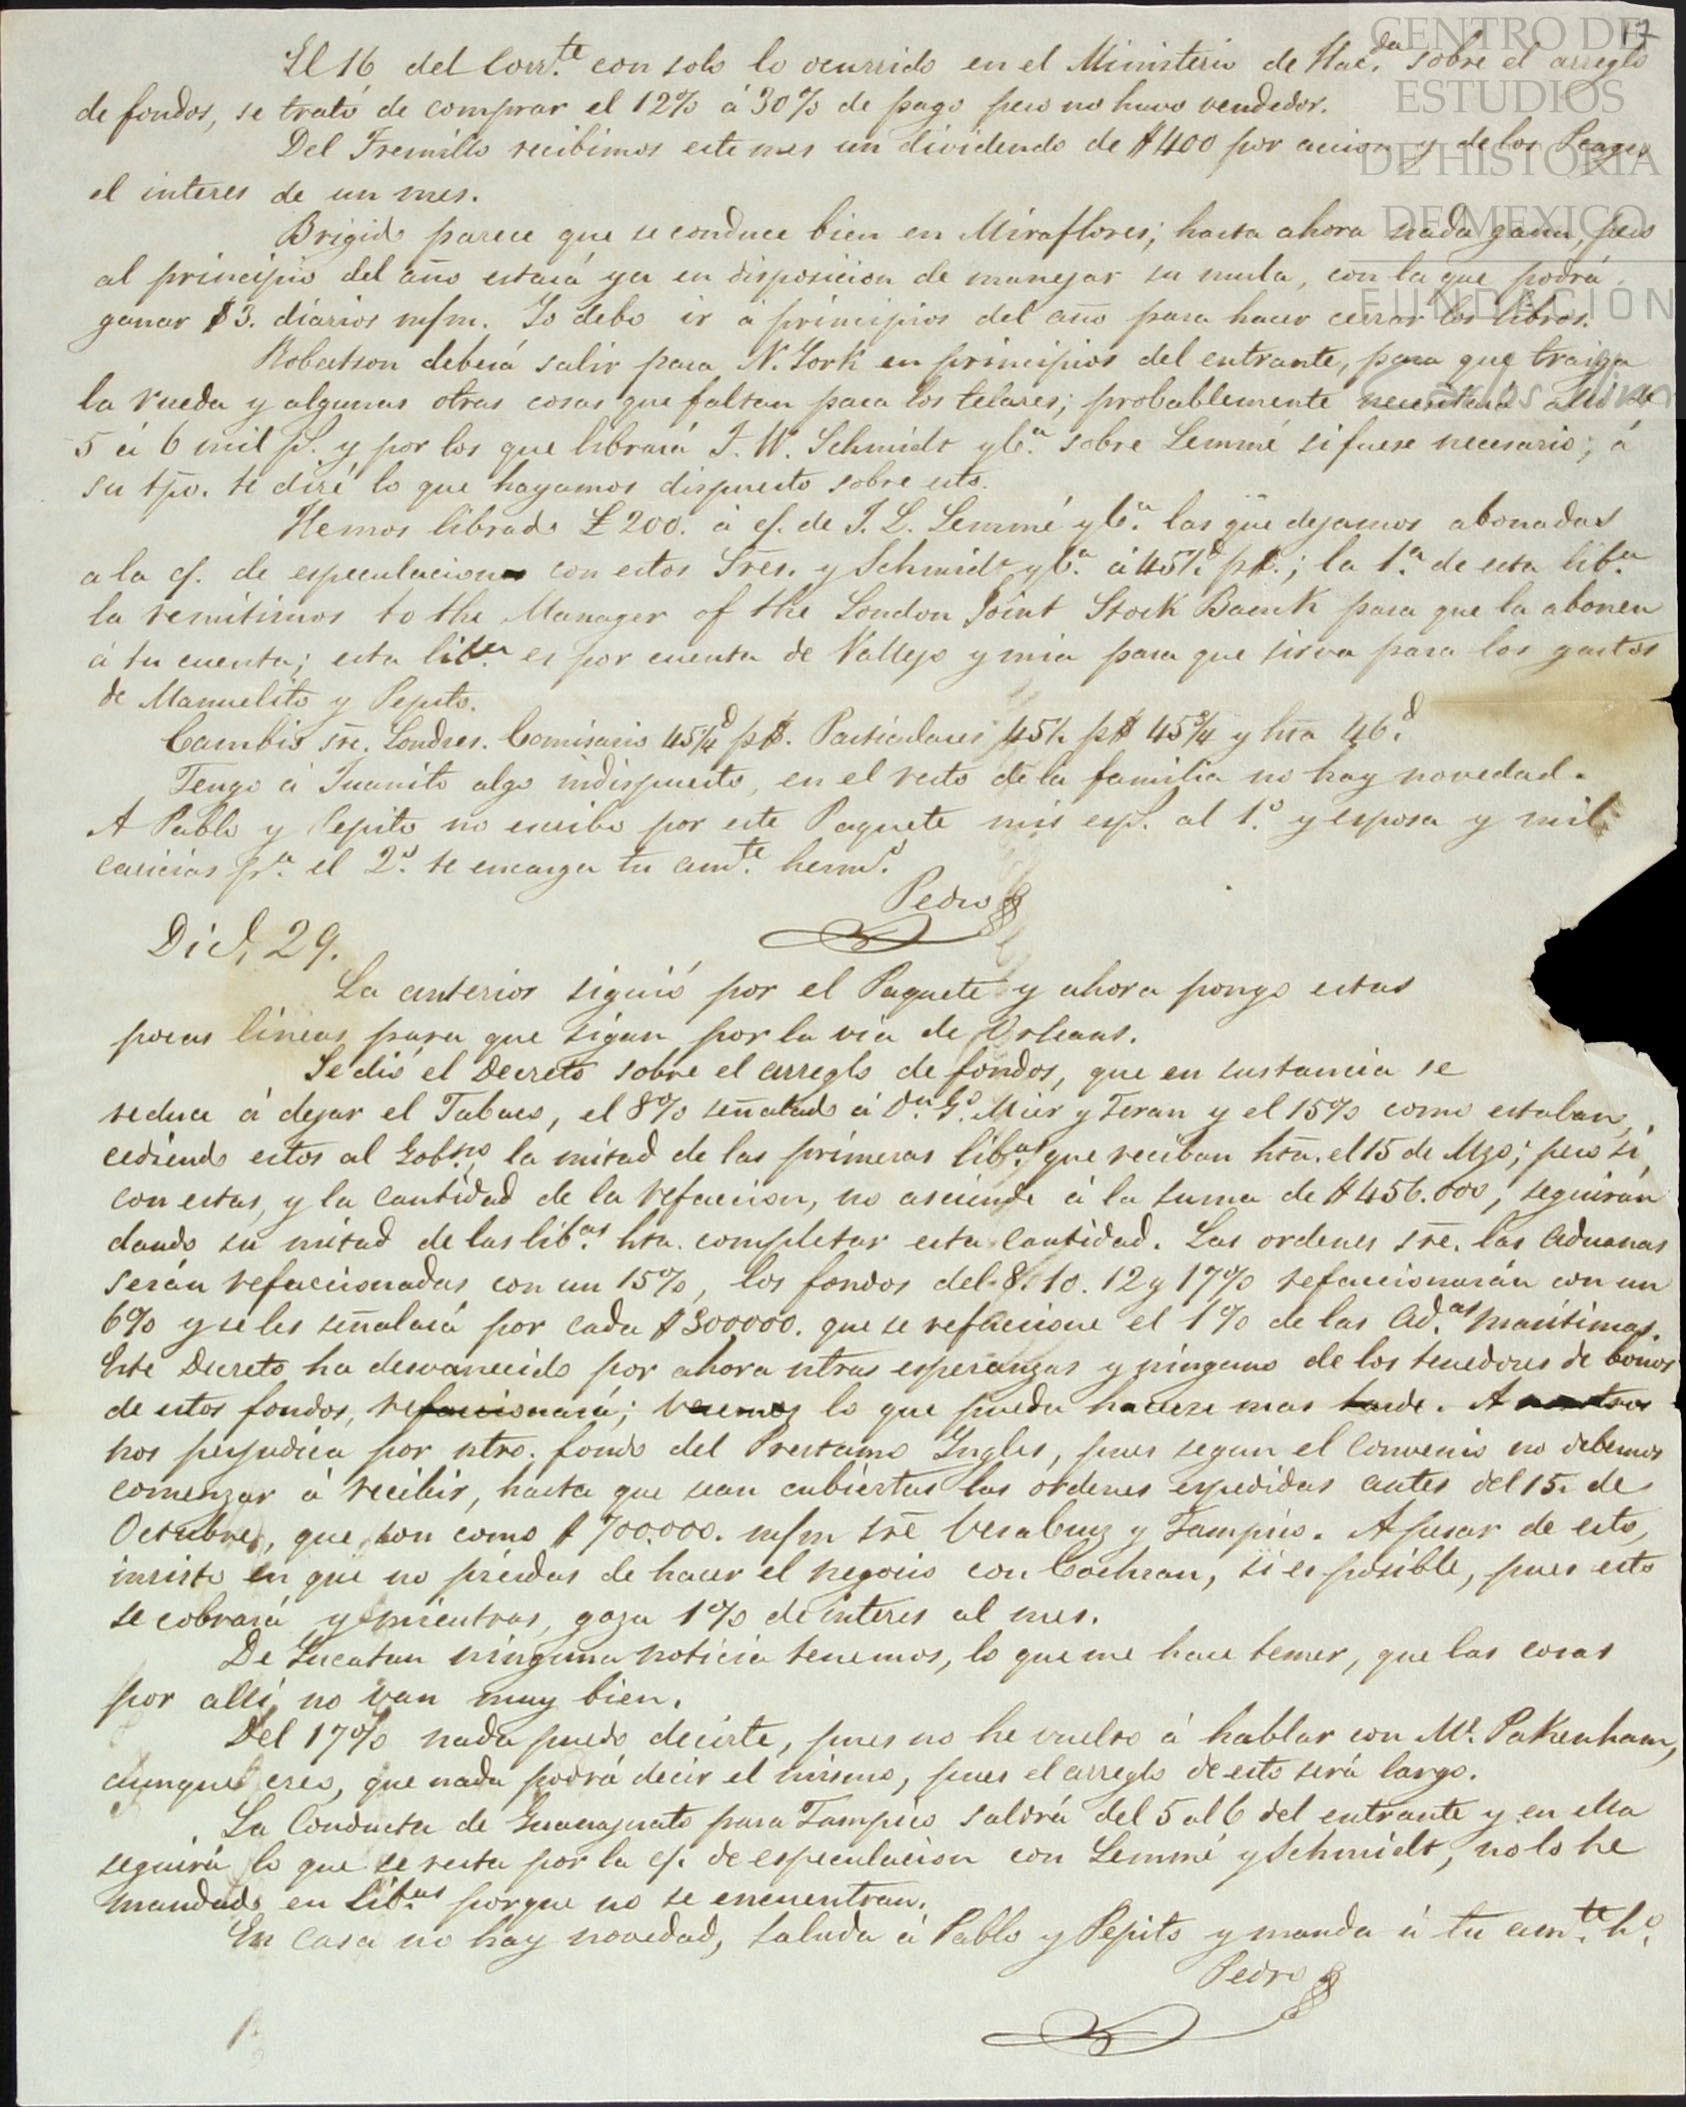 17
CENTRO DE
ESTUDIOS
DE HISTORIA
DE MEXICO
FUNDACIÓN
El 16 del Corr.te con solo lo ocurrido en el Ministerio de Hac.da sobre el arreglo
de fondos, se trató de comprar el 12% á 30% de pago pero no huvo vendedor.
Del Fresnillo recibimos este mes un dividendo de $400 por accion y de los Peages
el interes de un mes.
Brigido parece que se conduce bien en Miraflores; hasta ahora nada gana, pero
al principio del año estará ya en disposicion de manejar su mula, con la que podrá
ganar $3. diarios m/m. Yo debo ir á principios del año para hacer cerrar los libros.
Robertson deberá salir para N. York en principios del entrante, para que traiga
la rueda y algunas otras cosas que faltan para los telares; probablemente necesitará allí de
5 á 6 mil p.s y por los que librará J. W. Schmidt y C.a sobre Lemmé si fuese necesario; á
su tpo. te diré lo que hayamos dispuesto sobre esto.
Hemos librado £200. á c/. de J. L. Lemmé y C.a las que dejamos abonadas
a la c/. de especulacion con estos Sres. y Schmidt y C.a á 45½d p$.; la 1.a de esta lib.a
la remitimos to the Manager of the London Joint Stock Banck para que la abonen
á tu cuenta; esta lib.a es por cuenta de Vallejo y mia para que sirva para los gastos
de Manuelito y Pepito.
Cambio sre. Londres. Comisario 45¼d p$. Particulares 45½ p$ 45¾ y hta 46.d
Tengo á Juanito algo indispuesto, en el resto de la familia no hay novedad.
A Pablo y Pepito no escribo por este Paquete mis esp.s al 1.o y esposa y mil
caricias p.a el 2.o te encarga tu am.te herm.o
Pedro
Dic.e 29.
La anterior siguió por el Paquete y ahora pongo estas
pocas lineas para que sigan por la via de Orleans.
Se dió el Decreto sobre el arreglo de fondos, que en sustancia se
reduce á dejar el Tabaco, el 8% señalado á D.n G.o Mier y Teran y el 15% como estaban,
cediendo estos al Gob.no la mitad de las primeras lib.as que reciban hta. el 15 de Mzo; pero si,
con estas, y la cantidad de la refaccion, no asciende á la suma de $456.000, seguirán
dando su mitad de las lib.as hta. completar esta cantidad. Las ordenes sre. las Aduanas
serán refaccionadas con un 15%, los fondos del 8. 10. 12 y 17% refaccionarán con un
6% y se les señalará por cada $300000. que se refaccione el 1% de las Ad.as maritimas.
Este Decreto ha desvanecido por ahora ntras esperanzas y ninguno de los tenedores de bonos
de estos fondos, refaccionará; veremos lo que pueda hacerse mas tarde. A nosotros
nos perjudica por ntro. fondo del Prestamo Yngles, pues segun el convenio no debemos
comenzar á recibir, hasta que sean cubiertas las ordenes expedidas antes del 15. de
Octubre, que son como $700.000. m/m sre Vera Cruz y Tampico. A pesar de esto,
insisto en que no pierdas de hacer el negocio con Cochran, si es posible, pues esto
se cobrará y mientras, goza 1% de interes al mes.
De Yucatan ninguna noticia tenemos, lo que me hace temer, que las cosas
por allí no van muy bien.
Del 17% nada puedo decirte, pues no he vuelto á hablar con Mr. Pakenham,
aunque creo, que nada podrá decir el mismo, pues el arreglo de esto será largo.
La Conducta de Guanajuato para Tampico saldrá del 5 al 6 del entrante y en ella
seguirá lo que se resta por la c/. de especulacion con Lemmé y Schmidt, no lo he
mandado en lib.as porque no se encuentran.
En casa no hay novedad, saluda á Pablo y Pepito y manda á tu am.te h.o
Pedro